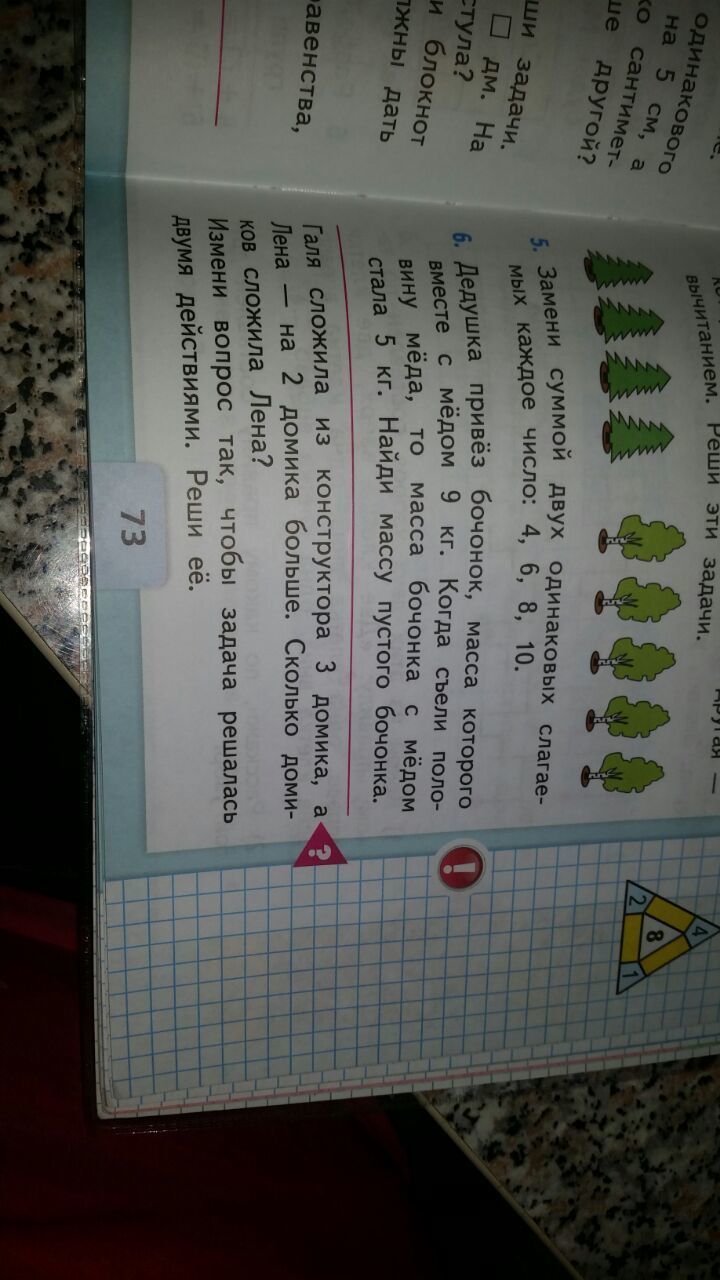 одинакового
на 5 см, а
сантимет-
другой?
задачи.
□ дм. На
стула?
и блокнот
дать
равенства,
вычитанием. Реши эти задачи.
5. Замени суммой двух одинаковых слагае-
мых каждое число: 4, 6, 8, 10.
6. Дедушка привёз бочонок, масса которого
вместе с мёдом 9 кг. Когда съели поло-
вину мёда, то масса бочонка с мёдом
стала 5 кг. Найди массу пустого бочонка.
!
Галя сложила из конструктора 3 домика, а
Лена — на 2 домика больше. Сколько доми-
ков сложила Лена?
Измени вопрос так, чтобы задача решалась
двумя действиями. Реши её.
?
73
4
8
2
1